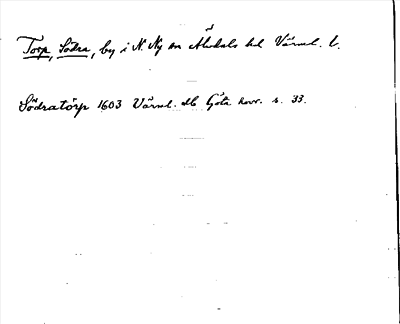 Torp, Södra, by i N. Ny sn Älvdals hd Värml. l.
Södratorp 1603 Värml. db Göta hovr. s. 33.